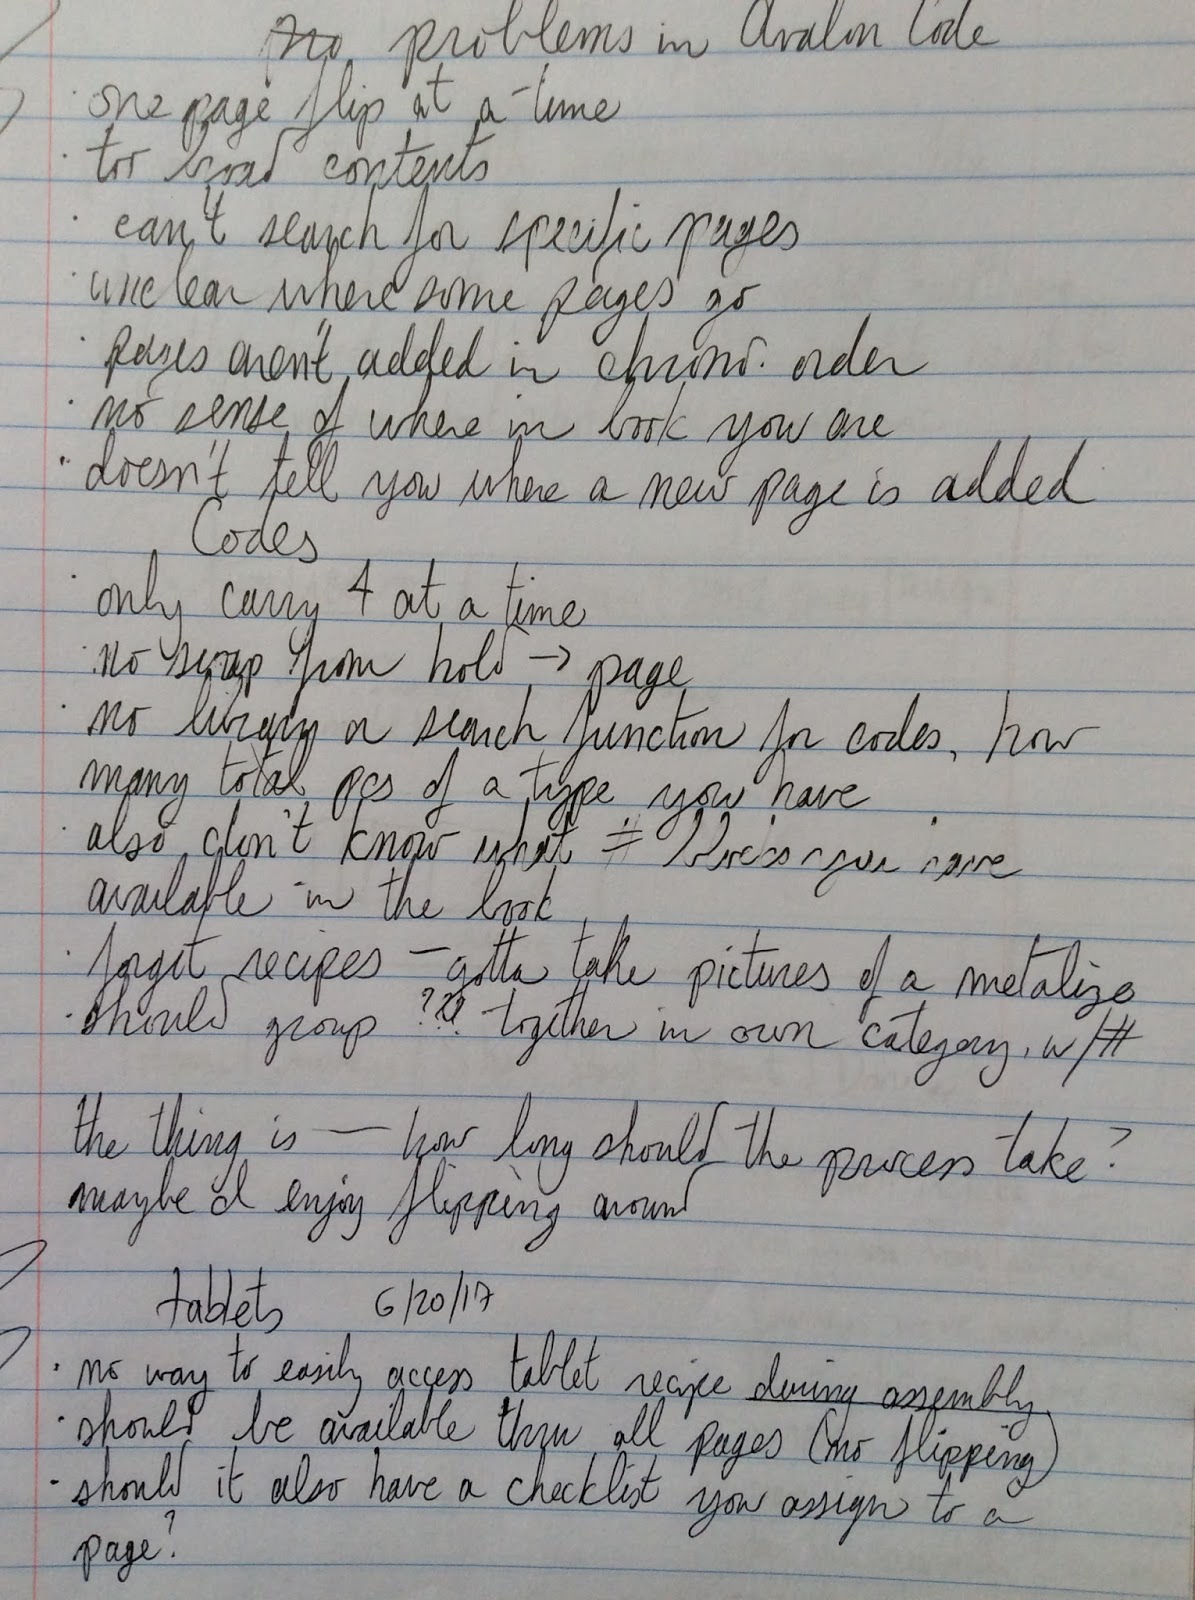 problems in Avalon Code
· one page flip at a time
· too broad contents
· can't search for specific pages
· unclear where some pages go
· pages aren't added in chrono. order
· no sense of where in book you are
· doesn't tell you where a new page is added
Codes
· only carry 4 at a time
· no swap from hold → page
· no library or search function for codes, how
many total pcs of a type you have
· also don't know what # you have
available in the book
· forgot recipes - gotta take pictures of a metalize
· should group ??? together in own category, w/#
the thing is — how long should the process take?
maybe I enjoy flipping around
tablets 6/20/17
· no way to easily access tablet recipe during assembly
· should be available thru all pages (no flipping)
- should it also have a checklist you assign to a
page?